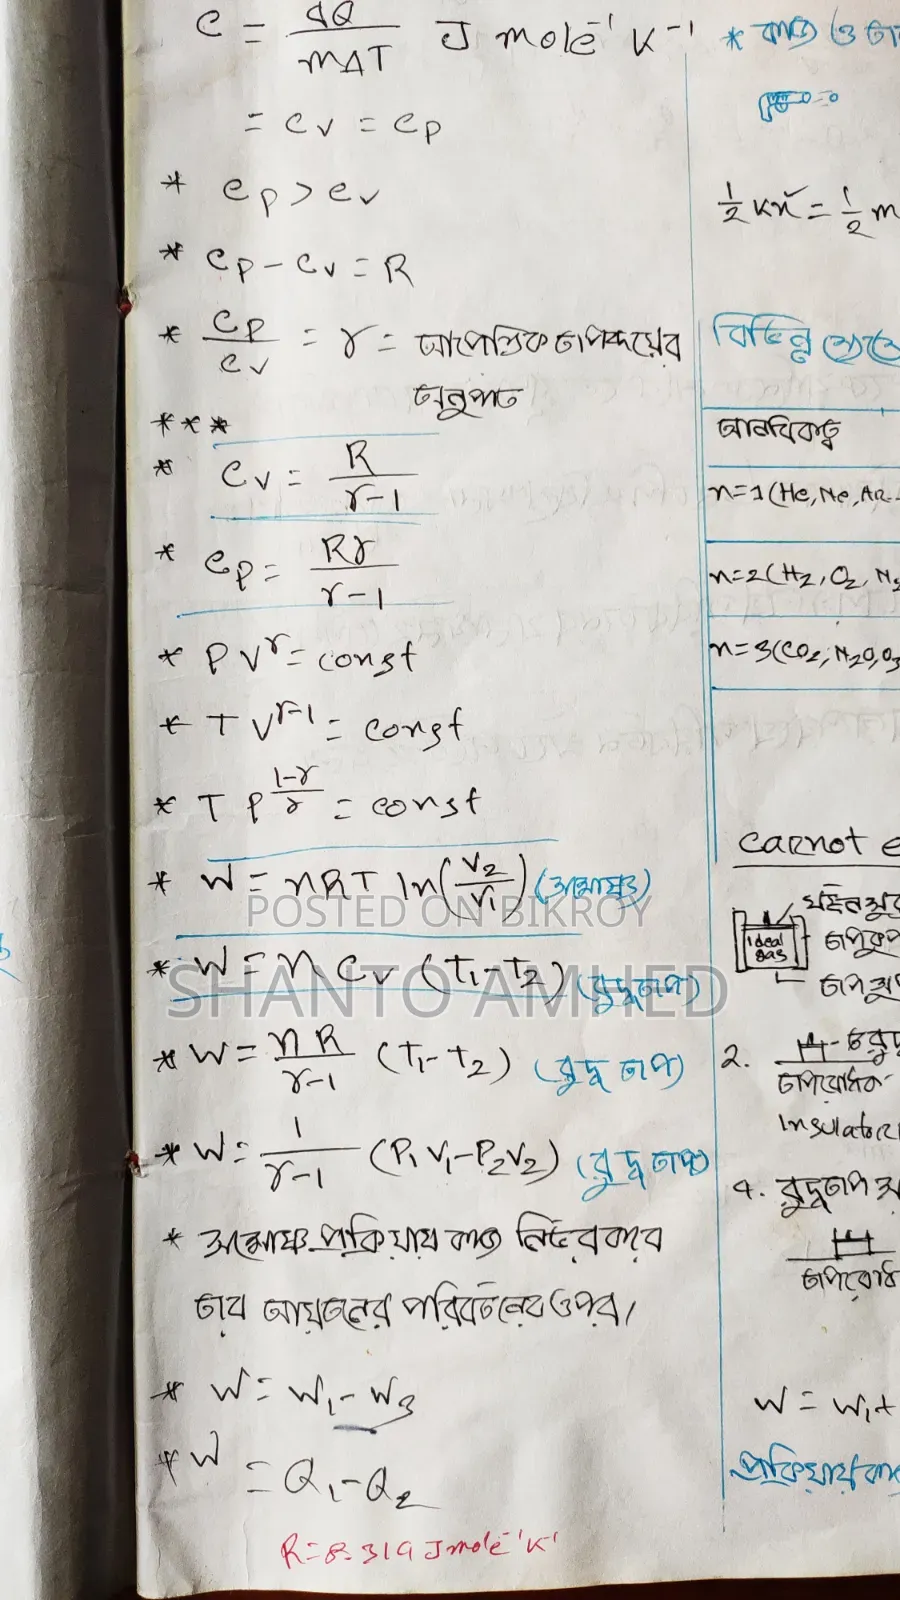 C = ΔQ / mΔT J mole⁻¹ K⁻¹
= Cv = Cp
* Cp > Cv
* Cp - Cv = R
* Cp / Cv = γ = আপেক্ষিক তাপদ্বয়ের
অনুপাত
***
* Cv = R / γ-1
* Cp = Rγ / γ-1
* PV^γ = const
* TV^γ-1 = const
* TP^(1-γ)/γ = const
* W = nRT ln(V₂/V₁) (সমোষ্ণ)
POSTED ON BIKROY
* W = n Cv (T₁-T₂) (রুদ্ধতাপ)
SHANTO AMHED
* W = nR / γ-1 (T₁-T₂) (রুদ্ধ তাপ)
* W = 1 / γ-1 (P₁V₁-P₂V₂) (রুদ্ধ তাপ)
* সমোষ্ণ প্রক্রিয়ায় কাজ নির্ভর করে
তার আয়তনের পরিবর্তনের ওপর।
* W = W₁ - W₃
* W = Q₁-Q₂
R = 8.314 J mole⁻¹ K⁻¹
* কাজ ও
½ Kx² = ½ m
বিভিন্ন
আনবিকত্ব
n=1 (He, Ne, Ar
n=2 (H₂, O₂, N₂
n=3 (CO₂, N₂O, O₃
Carnot e
ideal
gas
2.
তাপরোধক
Insulator
4. রুদ্ধতাপ
W = W₁ +
প্রক্রিয়ায়